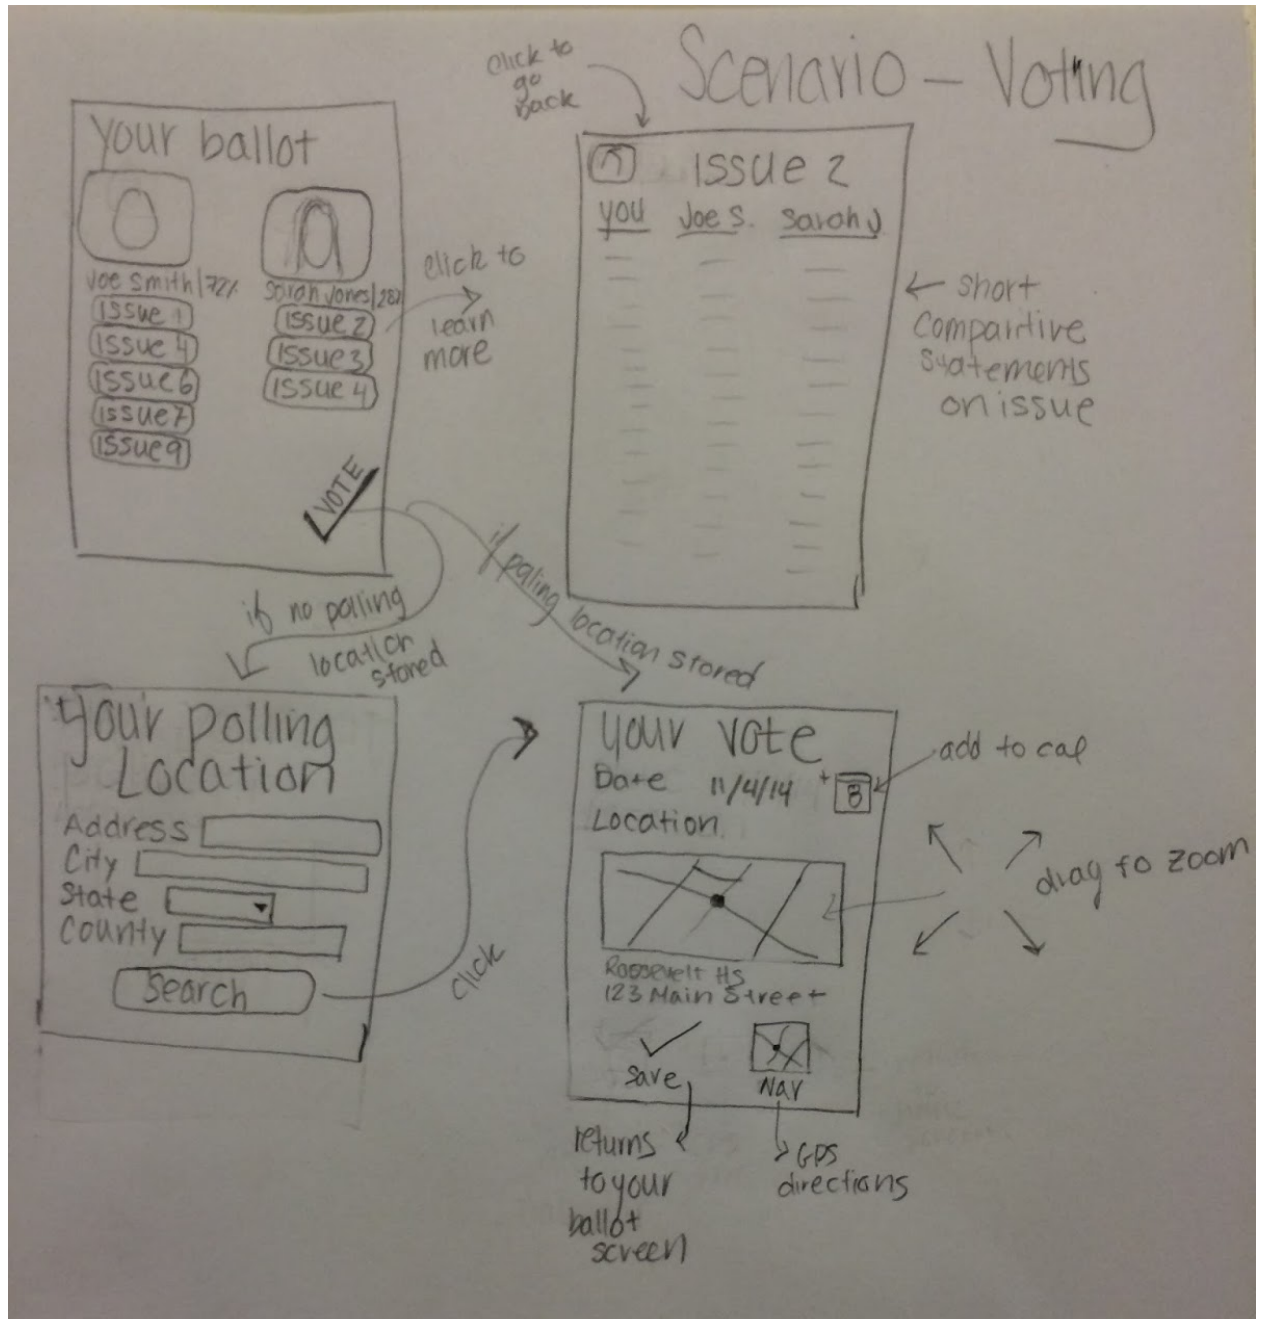 Scenario - Voting
click to
go
back
Your ballot
Joe Smith | 72%
Issue 1
Issue 4
Issue 6
Issue 7
Issue 9
Sarah Jones | 28%
Issue 2
Issue 3
Issue 4
VOTE
click to
learn
more
Issue 2
You Joe S. Sarah J.
short
comparitive
statements
on issue
if no polling
location
stored
if polling location stored
Your polling
Location
Address
City
State
County
Search
click
Your vote
Date 11/4/14 +
Location
add to cal
drag to zoom
Roosevelt HS
123 Main Street
save
Nav
returns
to your
ballot
screen
GPS
directions